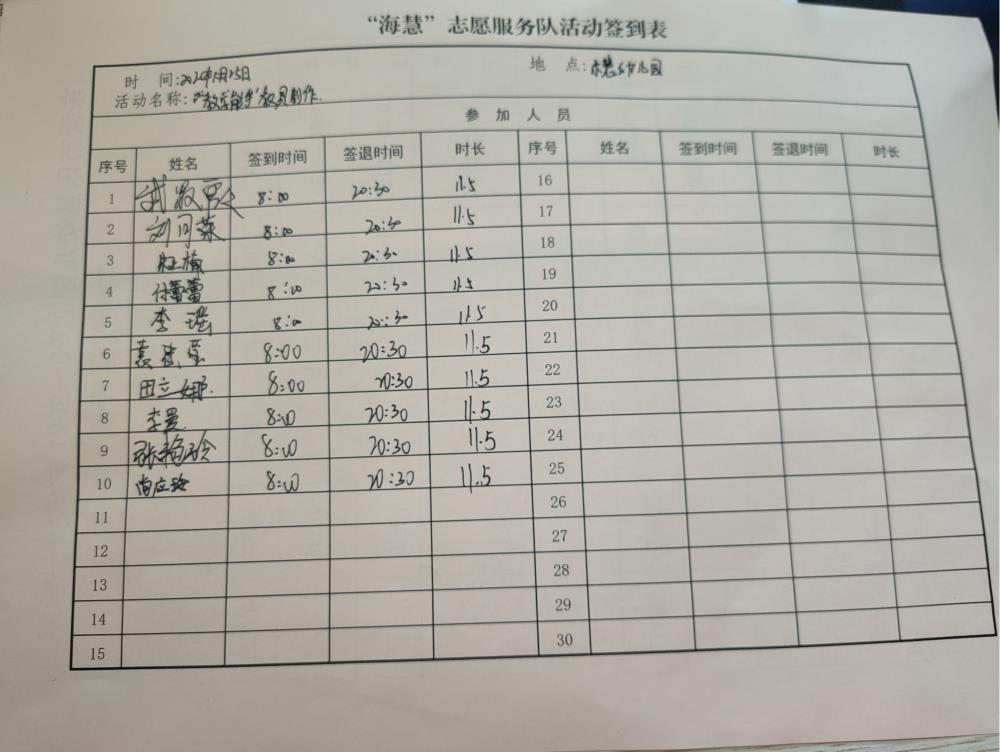 “海慧”志愿服务队活动签到表
时 间: 25日 地 点: 幼儿园
活动名称: 教具制作
参 加 人 员
序号 姓名 签到时间 签退时间 时长 序号 姓名 签到时间 签退时间 时长
1 8:00 20:30 11.5 16
2 刘同荣 8:00 20:30 11.5 17
3 楠 8:00 20:30 11.5 18
4 付蕾蕾 8:00 20:30 11.5 19
5 李瑶 8:00 20:30 11.5 20
6 袁 莹 8:00 20:30 11.5 21
7 田立娜 8:00 20:30 11.5 22
8 李 8:00 20:30 11.5 23
9 张艳玲 8:00 20:30 11.5 24
10 尚应玲 8:00 20:30 11.5 25
11 26
12 27
13 28
14 29
15 30